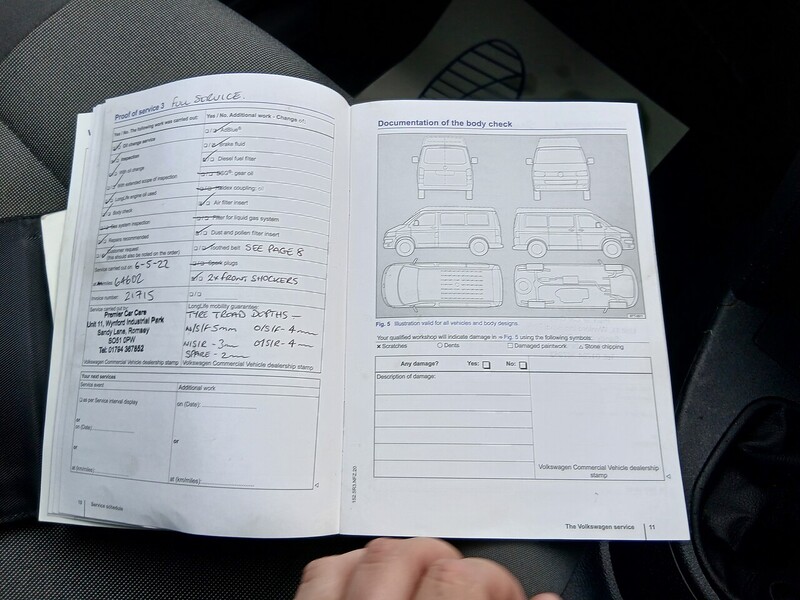 Proof of service 3 FULL SERVICE.
Yes / No. The following work was carried out:
Oil change service
Inspection
With oil change
With extended scope of inspection
LongLife engine oil used
Body check
Gas system inspection
Repairs recommended
Customer request:
(this should also be noted on the order)
Service carried out on: 6-5-22
64602
Invoice number: 21715
Service carried out by:
Premier Car Care
Unit 11, Wynford Industrial Park
Sandy Lane, Romsey
SO51 0PW
Tel: 01794 367852
Volkswagen Commercial Vehicle dealership stamp
Yes / No. Additional work - Change of:
AdBlue®
Brake fluid
Diesel fuel filter
DSG® gear oil
Haldex coupling: oil
Air filter insert
Filter for liquid gas system
Dust and pollen filter insert
Toothed belt SEE PAGE 8
Spark plugs
2x FRONT SHOCKERS
LongLife mobility guarantee:
TYRE TROAD DEPTHS -
N/S/F - 5mm O/S/F - 4mm
N/S/R - 3m O/S/R - 4m
SPARE - 2mm
Volkswagen Commercial Vehicle dealership stamp
Your next services
Service event
as per Service interval display
or
on (Date):
or
at (km/miles):
Additional work
on (Date):
or
at (km/miles):
Service schedule
152.5R3.NFZ.20
Documentation of the body check
Fig. 5 Illustration valid for all vehicles and body designs.
Your qualified workshop will indicate damage in ⇒ Fig. 5 using the following symbols:
× Scratches ○ Dents □ Damaged paintwork △ Stone chipping
Any damage? Yes: No:
Description of damage:
Volkswagen Commercial Vehicle dealership
stamp
The Volkswagen service 11